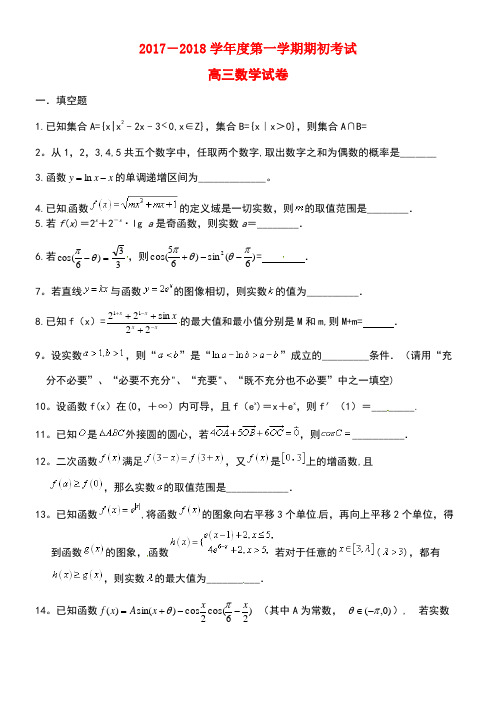 2017－2018学年度第一学期期初考试
高三数学试卷
一．填空题
1.已知集合A={x|x²﹣2x﹣3<0,x∈Z},集合B={x｜x＞0},则集合A∩B=
2。从1，2，3,4,5共五个数字中，任取两个数字,取出数字之和为偶数的概率是_______
3.函数y=ln x－x的单调递增区间为_____________。
4.已知函数f(x)=√(mx²+mx+1)的定义域是一切实数，则m的取值范围是________．
5.若f(x)＝2ˣ＋2⁻ˣ·lg a是奇函数，则实数a＝________．
6.若cos(π/6－θ)=√3/3，则cos(5π/6+θ)－sin²(θ－π/6)= ．
7。若直线y=kx与函数y=2eˣ的图像相切，则实数k的值为__________．
8.已知f（x）=(2^(1+x)+2^(1-x)+sin x)/(2^x+2^(-x))的最大值和最小值分别是M和m,则M+m= ．
9。设实数a>1,b>1，则“a<b”是“ln a-ln b>a-b”成立的_________条件．（请用“充
分不必要”、“必要不充分"、“充要"、“既不充分也不必要”中之一填空)
10。设函数f(x）在(0，＋∞）内可导，且f（eˣ)＝x＋eˣ，则f′（1)＝________．
11。已知O是△ABC外接圆的圆心，若4OA+5OB+6OC=0，则cosC=__________．
12。二次函数f(x)满足f(3-x)=f(3+x)，又f(x)是[0,3]上的增函数,且
f(a)≥f(0)，那么实数a的取值范围是____________．
13。已知函数f(x)=e^|x|,将函数f(x)的图象向右平移3个单位后，再向上平移2个单位，得
到函数g(x)的图象,函数h(x)={e(x-1)+2,x≤5, 4e^(6-x)+2,x>5, 若对于任意的x∈[3,λ]（λ>3)，都有
h(x)≥g(x)，则实数λ的最大值为__________．
14。已知函数f(x)=A sin(x+θ)－cos x/2 cos(π/6－x/2) （其中A为常数， θ∈(-π,0)）． 若实数